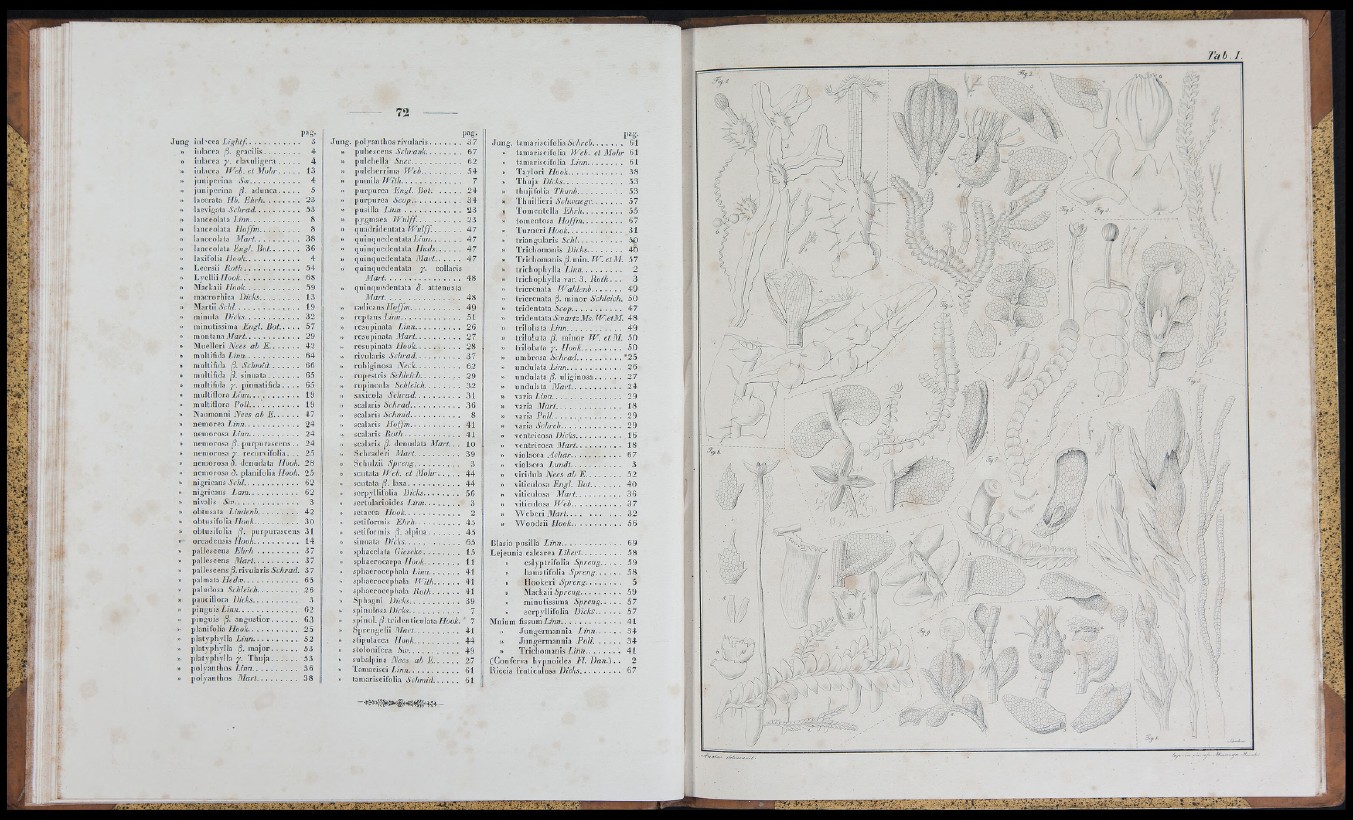 72
pag.
Jung. iulacea Lightf. 3
» iulacea β. gracilis 4
» iulacea γ. clavuligera 4
» iulacea Web. et Mohr 13
» juniperina Sw. 4
» juniperina β. adunca 5
» lacerata Hb. Ehrh. 25
» laevigata Schrad. 53
» lanceolata Linn. 8
» lanceolata Hoffm. 8
» lanceolata Mart. 38
» lanceolata Engl. Bot. 36
» laxifolia Hook. 4
» Leersii Roth 54
» Lyellii Hook. 68
» Mackaii Hook. 59
» macrorhiza Dicks. 13
» Martii Schl. 19
» minuta Dicks. 32
» minutissima Engl. Bot. 57
» montana Mart. 27
» Muelleri Nees ab E. 42
» multifida Linn. 64
» multifida β. Schmid. 66
» multifida β. sinuata 65
» multifida γ. pinnatifida 65
» multiflora Linn. 19
» multiflora Poll. 19
» Naumanni Nees ab E. 47
» nemorea Linn. 24
» nemorosa Linn. 24
» nemorosa β. purpurascens 24
» nemorosa γ. recurvifolia 25
» nemorosa δ. denudata Hook. 28
» nemorosa δ. planifolia Hook. 25
» nigricans Schl. 62
» nigricans Lam. 62
» nivalis Sw. 3
» obtusata Lindenb. 42
» obtusifolia Hook. 30
» obtusifolia β. purpurascens 31
» orcadensis Hook. 14
» pallescens Ehrh 37
» pallescens Mart. 37
» pallescens β. rivularis Schrad. 37
» palmata Hedw. 63
» paludosa Schleich. 26
» pauciflora Dicks. 3
» pinguis Linn. 62
» pinguis β. angustior 63
» planifolia Hook. 25
» platyphylla Linn. 52
» platyphylla β. major 53
» platyphylla γ. Thuja 53
» polyanthos Linn. 36
» polyanthos Mart. 38
pag.
Jung. polyanthos rivularis 37
» pubescens Schrank. 67
» pulchella Smec. 62
» pulcherrima Web. 54
» pumila With. 7
» purpurea Engl. Bot. 24
» purpurea Scop. 34
» pusilla Linn. 23
» pygmaea Wulff. 23
» quadridentata Wulff. 47
» quinquedentata Linn. 47
» quinquedentata Huds. 47
» quinquedentata Mart. 47
» quinquedentata γ. collaris
Mart. 48
» quinquedentata δ. attenuata
Mart. 48
» radicans Hoffm. 49
» reptans Linn. 51
» resupinata Linn. 26
» resupinata Mart. 27
» resupinata Hook. 28
» rivularis Schrad. 37
» rubiginosa Neck. 62
» rupestris Schleich. 29
» rupincola Schleich. 32
» saxicola Schrad. 31
» scalaris Schrad. 36
» scalaris Schmid. 8
» scalaris Hoffm. 41
» scalaris Roth 41
» scalaris β. denudata Mart. 10
» Schraderi Mart. 39
» Schulzii Spreng. 3
» scutata Web. et Mohr 44
» scutata β. laxa 44
» serpyllifolia Dicks. 56
» sertularioides Linn. 3
» setacea Hook. 2
» setiformis Ehrh. 45
» setiformis β. alpina 45
» sinuata Dicks. 65
» sphacelata Giescke 15
» sphaerocarpa Hook. 11
» sphaerocephala Linn. 41
» sphaerocephala With. 41
» sphaerocephala Roth 41
» Sphagni Dicks. 39
» spinulosa Dicks. 7
» spinul. β. tridenticulata Hook. 7
» Sprengelii Mart. 41
» stipulacea Hook. 44
» stolonifera Sw. 49
» subalpina Nees ab E. 27
» Tamarisci Linn. 61
» tamariscifolia Schmid. 61
pag.
Jung. tamariscifolia Schreb. 61
» tamariscifolia Web. et Mohr 61
» tamariscifolia Linn. 61
» Taylori Hook. 38
» Thuja Dicks. 53
» thujifolia Thunb. 53
» Thuillieri Schwaegr. 57
» Tomentella Ehrh. 55
» tomentosa Hoffm. 67
» Turneri Hook. 31
» triangularis Schl.
» Trichomanis Dicks.
» Trichomanis β. min. W. et M. 57
» trichophylla Linn. 2
» trichophylla var. β. Roth. 3
» tricrenata Wahlenb. 49
» tricrenata β. minor Schleich. 50
» tridentata Scop. 47
» tridentata Swartz Ms. W. et M. 48
» trilobata Linn. 49
» trilobata β. minor W. et M. 50
» trilobata γ. Hook. 50
» umbrosa Schrad. *25
» undulata Linn. 26
» undulata β. uliginosa 27
» undulata Mart. 24
» varia Linn. 29
» varia Mart. 18
» varia Poll. 29
» varia Schreb. 29
» ventricosa Dicks. 16
» ventricosa Mart. 18
» violacea Achar. 67
» violacea Lundt. 3
» viridula Nees ab E. 52
» viticulosa Engl. Bot. 40
» viticulosa Mart. 36
» viticulosa Web. 37
» Weberi Mart. 32
» Woodsii Hook. 56
Blasia pusilla Linn. 69
Lejeunia calcarea Libert. 58
» calyptrifolia Spreng. 59
» hamatifolia Spreng. 58
» Hookeri Spreng. 5
» Mackaii Spreng. 59
» minutissima Spreng. 57
» serpyllifolia Dicks. 57
Mnium fissum Linn. 41
» Jungermannia Linn. 34
» Jungermannia Poll. 34
» Trichomanis Linn. 41
(Conferva hypnoides Fl. Dan.) 2
Riccia fruticulosa Dicks. 67
Tab. I.
Fig. 1
Fig. 2
Fig. 3
Fig. 4
Fig. 5
Fig. 6
Fig. 7
Fig. 8
Fig. 9